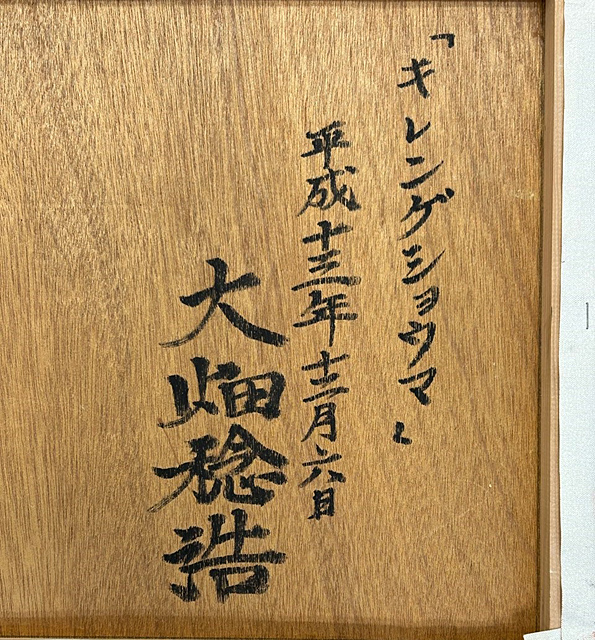 「キレンゲショウマ」
平成十三年十二月六日
大畑稔浩